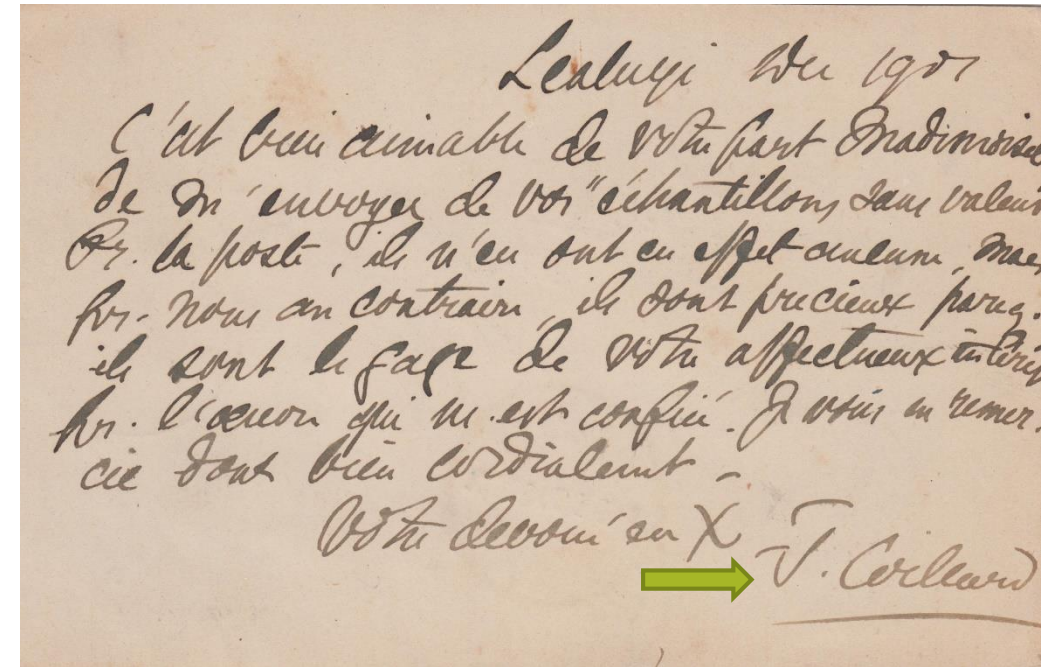 Lealuyi 1901
C'est bien aimable de votre part Mademoise
de m'envoyer de vos "échantillons sans valeur
Pr. la poste, ils n'en ont en effet aucune, mais
pr. nous au contraire, ils sont precieux parcq.
ils sont le gage de votre affectueux intérêt
pr. l'œuvre qui m'est confiée. Je vous en remer-
cie dont bien cordialement -
Votre devoué en X
F. Coillard